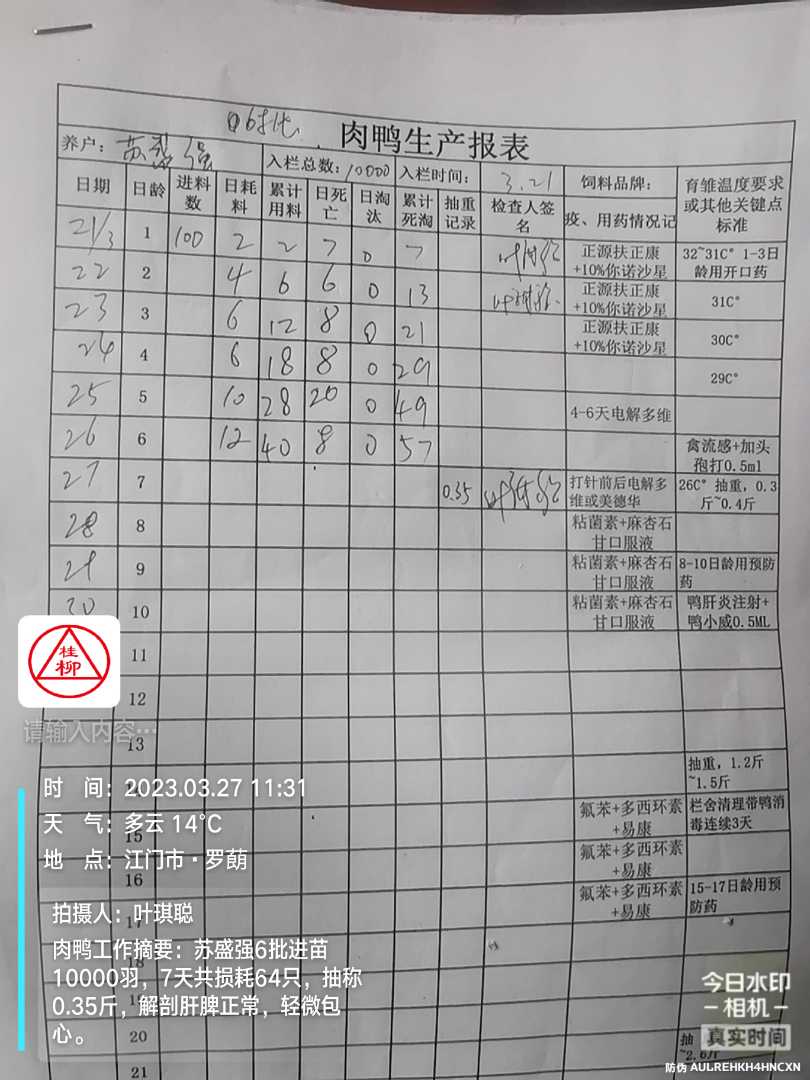 06批
肉鸭生产报表
养户：苏盛强 入栏总数：10000 入栏时间：3.21 饲料品牌： 育雏温度要求或其他关键点标准
日期 日龄 进料数 日耗料 累计用料 日死亡 日淘汰 累计死淘 抽重记录 检查人签名 疫、用药情况记
21/3 1 100 2 2 7 0 7 正源扶正康+10%你诺沙星 32~31C° 1-3日龄用开口药
22 2 4 6 6 0 13 正源扶正康+10%你诺沙星 31C°
23 3 6 12 8 0 21 正源扶正康+10%你诺沙星 30C°
24 4 6 18 8 0 29 29C°
25 5 10 28 20 0 49 4-6天电解多维
26 6 12 40 8 0 57 禽流感+加头孢打0.5ml
27 7 0.35 打针前后电解多维或美德华 26C° 抽重，0.3斤~0.4斤
28 8 粘菌素+麻杏石甘口服液
29 9 粘菌素+麻杏石甘口服液 8-10日龄用预防药
30 10 粘菌素+麻杏石甘口服液 鸭肝炎注射+鸭小威0.5ML
11
桂柳
12
请输入内容…
13
抽重，1.2斤~1.5斤
时 间：2023.03.27 11:31
天 气：多云 14℃
15 氟苯+多西环素+易康 栏舍清理带鸭消毒连续3天
地 点：江门市·罗荫
16 氟苯+多西环素+易康
17 氟苯+多西环素+易康 15-17日龄用预防药
拍摄人：叶琪聪
肉鸭工作摘要：苏盛强6批进苗
10000羽，7天共损耗64只，抽称
0.35斤，解剖肝脾正常，轻微包
心。
18
19
20
抽
~2.6斤
21
今日水印
相机
真实时间
防伪 AULREHKH4HNCXN